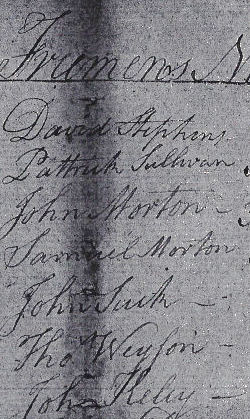 Fremens N
David Stephens
Pattrick Sullivan
John Morton –
Samuel Morton
John Suth –
Thos Weyson –
John Keley –